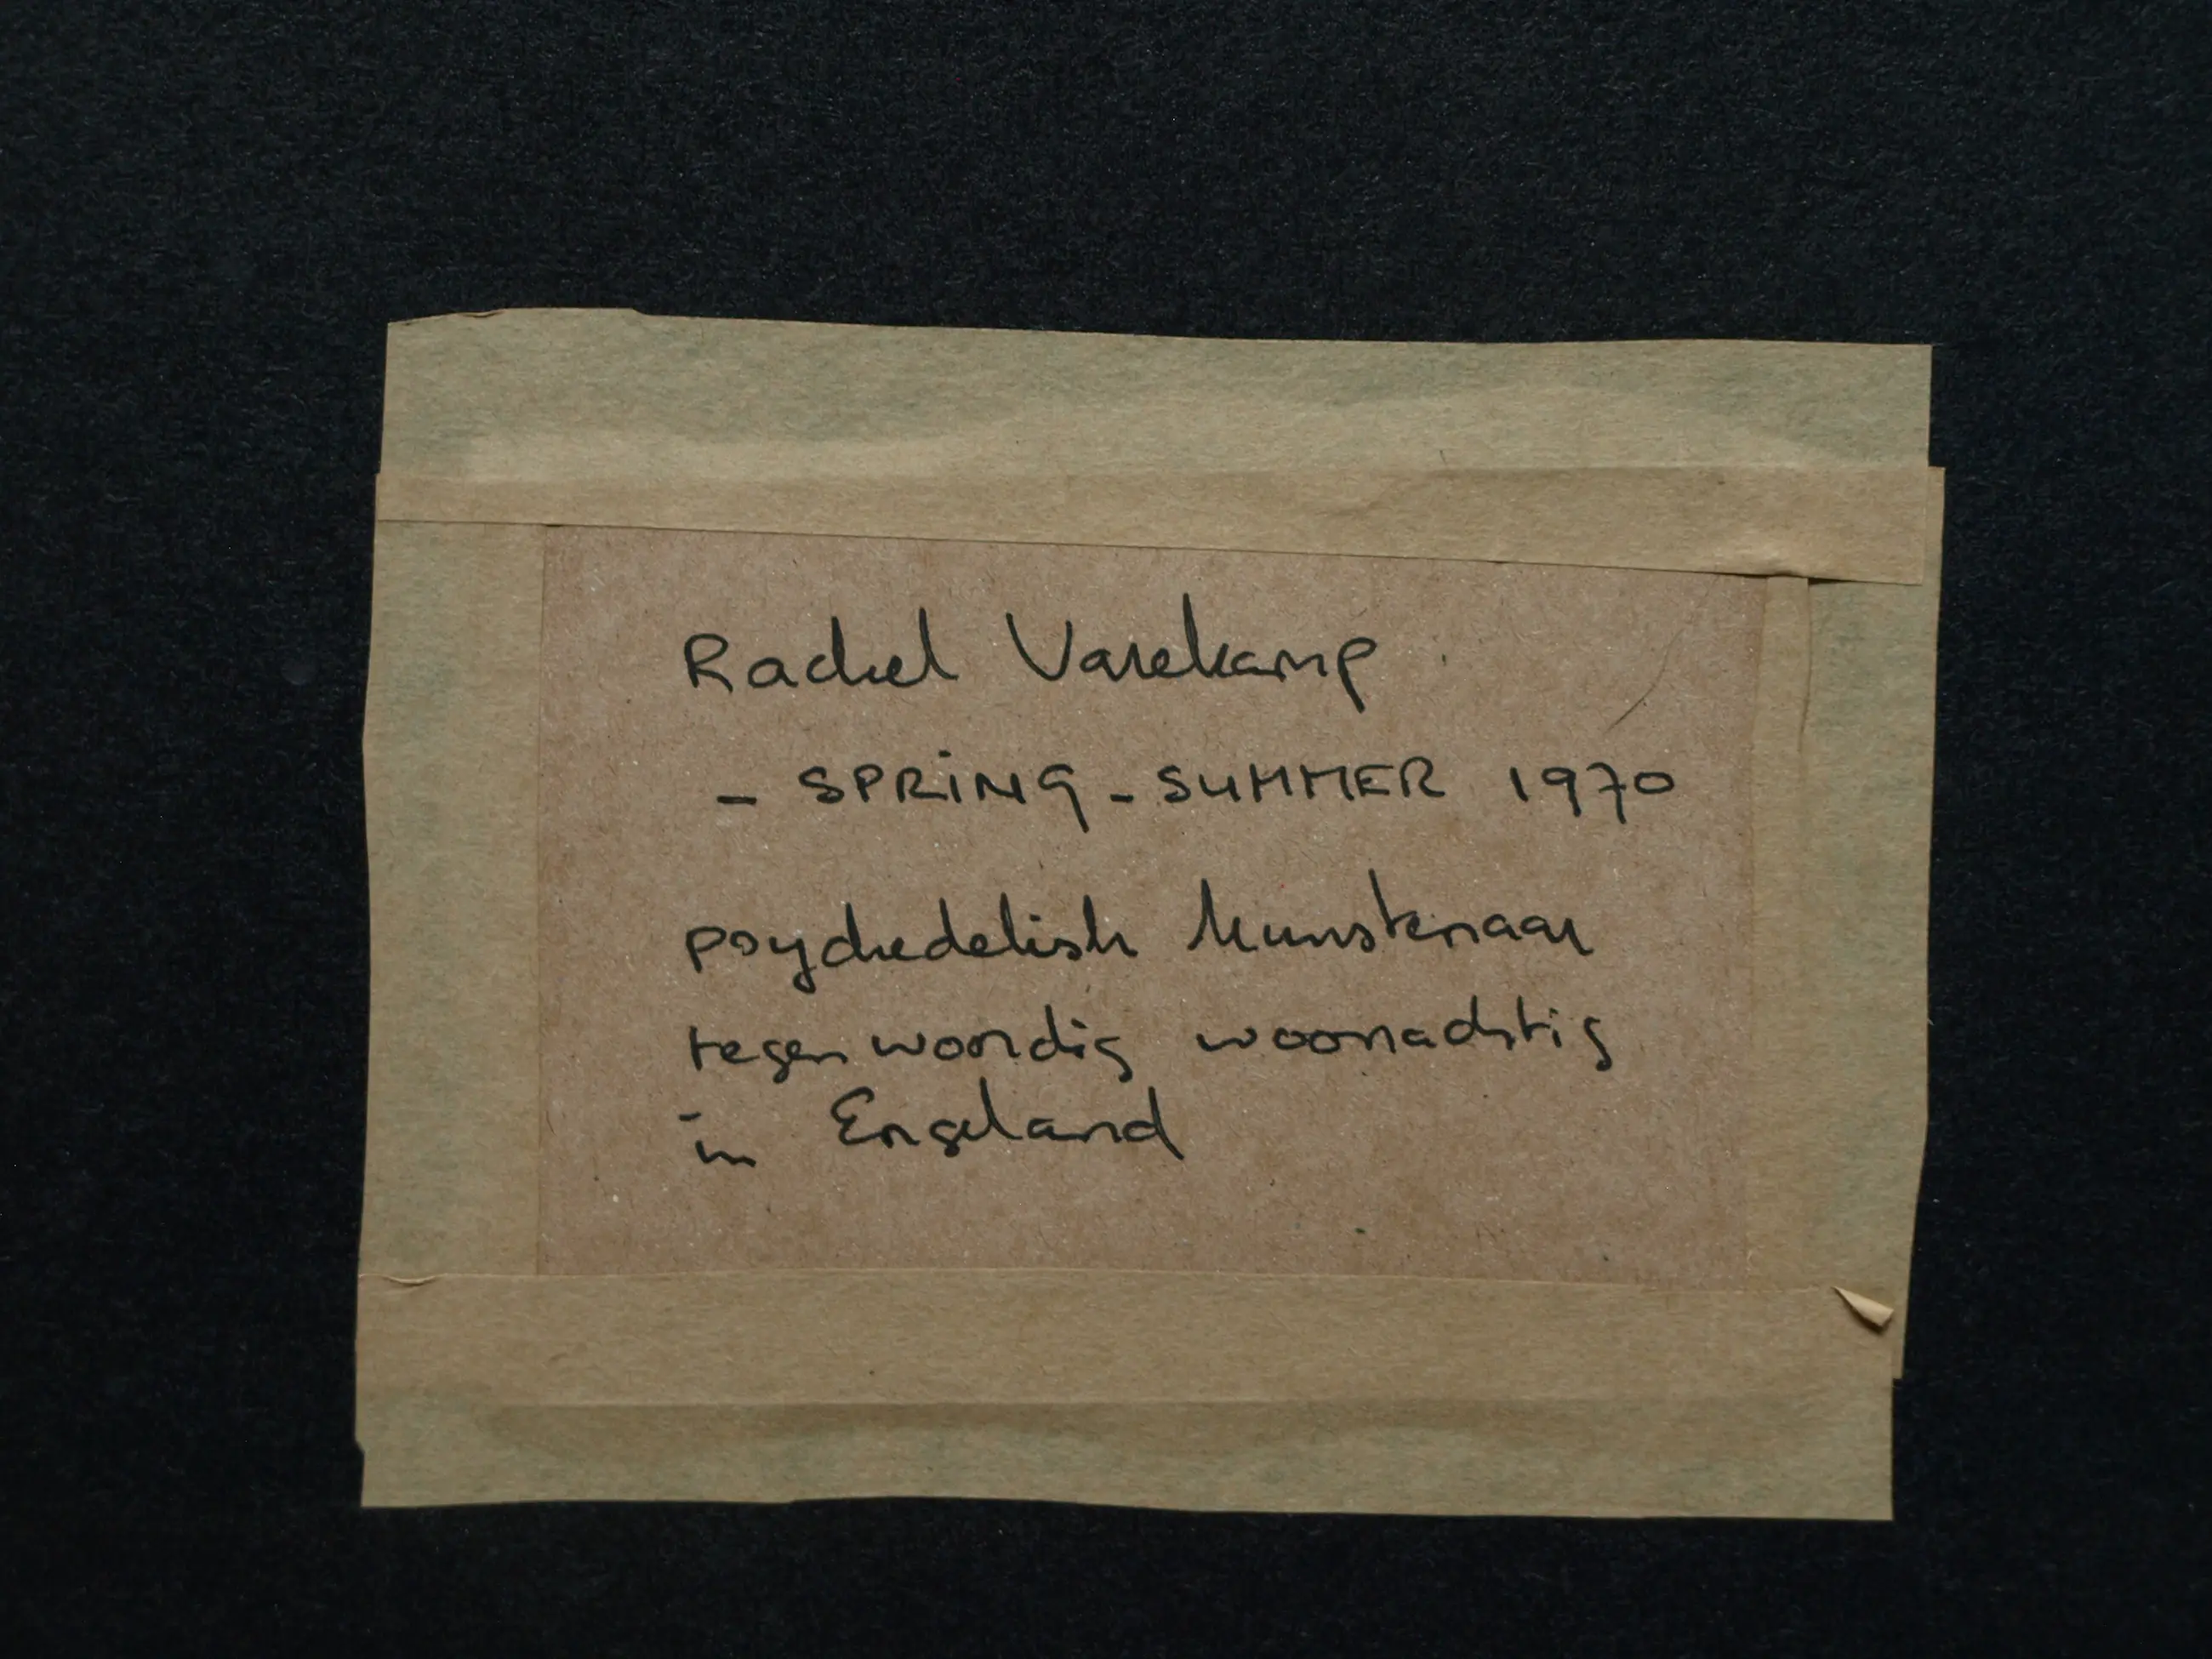 Rachel Varekamp
- SPRING - SUMMER 1970
psychedelish kunstenaar
tegenwoordig woonachtig
in Engeland